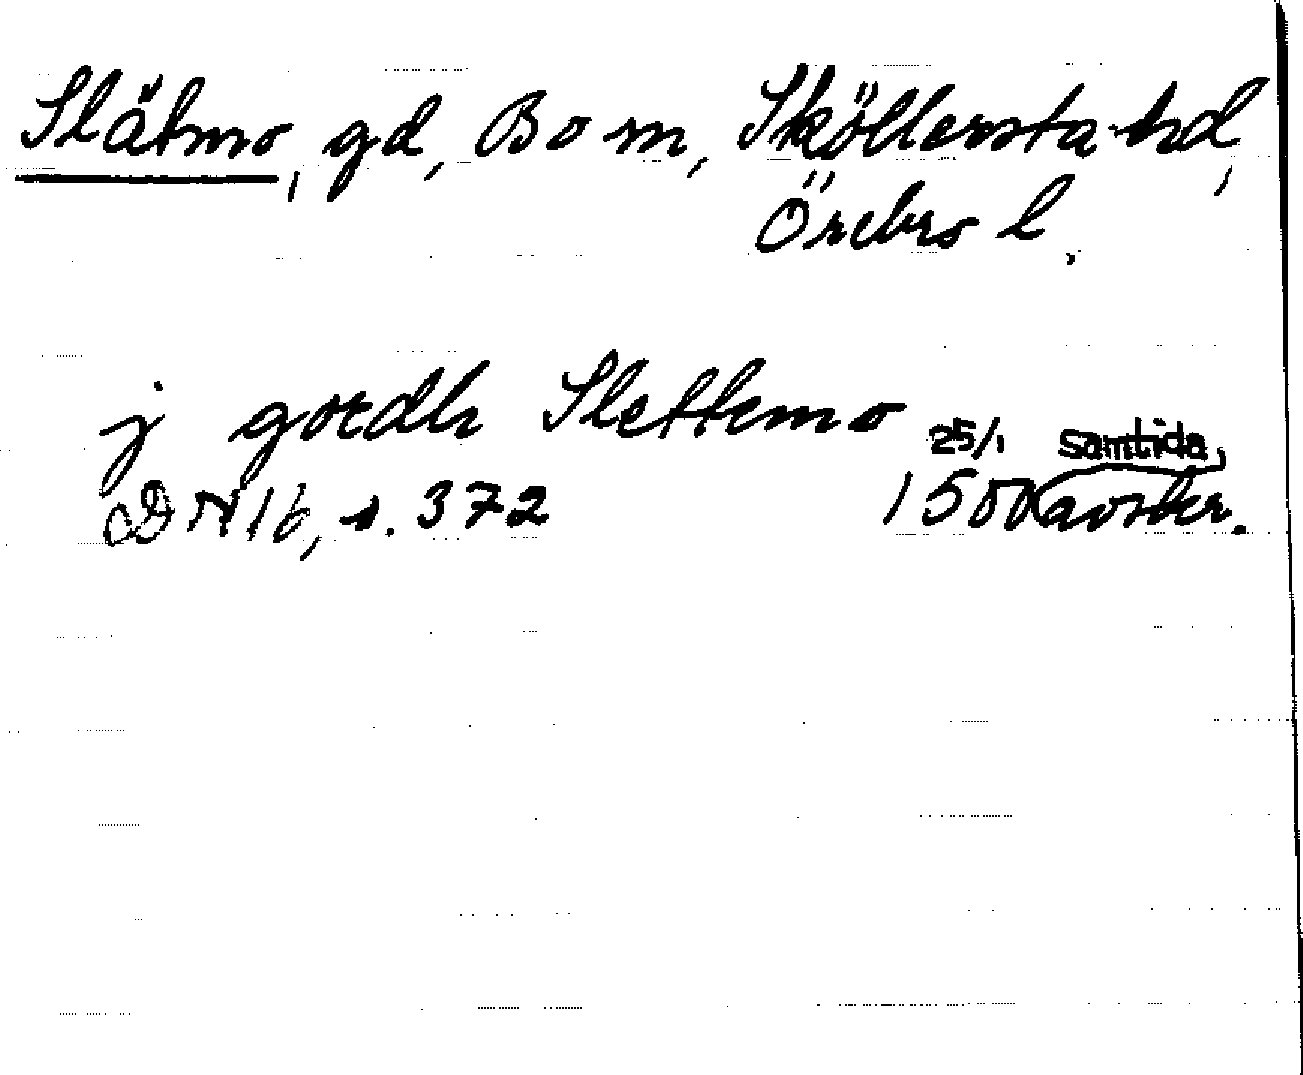 Slätmo, gd, Bo sn, Sköllersta hd,
Örebro l.
j gotdh Slettemo 25/1 samtida,
DN 16, s. 372 1500 avskr.